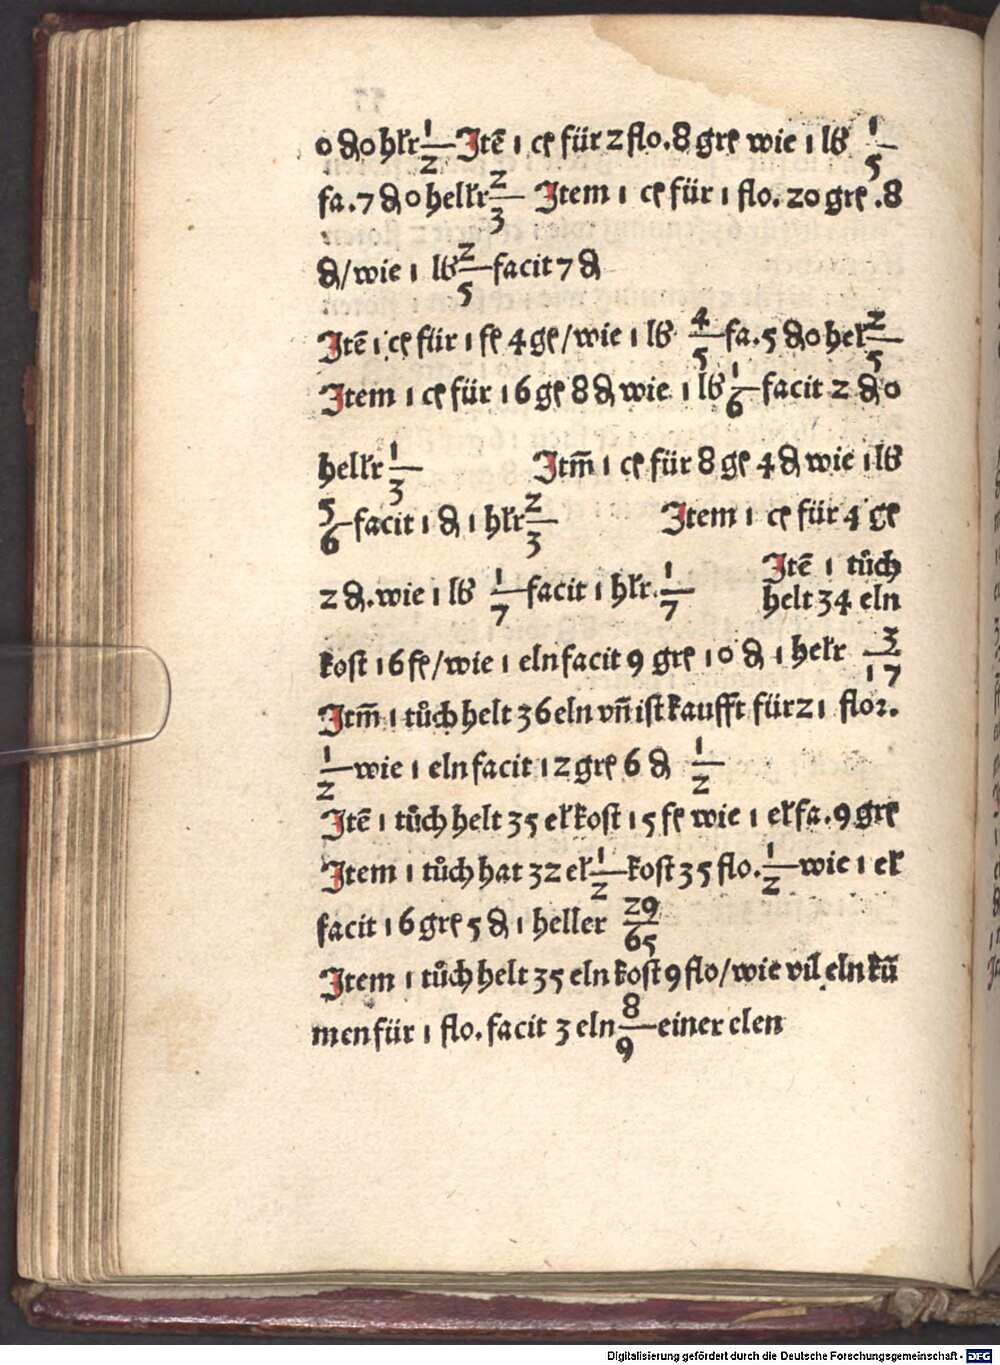 0 ₰ 0 hl̃r 1/2 Jtē 1 cꝭ für 2 flo. 8 grꝭ wie 1 lb 1/5
fa. 7 ₰ 0 hell̃r 2/3 Jtem 1 cꝭ für 1 flo. 20 grꝭ . 8
₰/ wie 1 lb 2/5 facit 7 ₰
Jtē 1 cꝭ für 1 ſꝭ 4 gꝭ/ wie 1 lb 4/5 fa. 5 ₰ 0 hel̃ 2/5
Jtem 1 cꝭ für 16 gꝭ 8 ₰ wie 1 lb 1/6 facit 2 ₰ 0
hell̃r 1/3 Jtm̃ 1 cꝭ für 8 gꝭ 4 ₰ wie 1 lb
5/6 facit 1 ₰ 1 hl̃r 2/3 Jtem 1 cꝭ für 4 gꝭ
2 ₰. wie 1 lb 1/7 facit 1 hl̃r. 1/7 Jtē 1 tůch
helt 34 eln
koſt 16 ſꝭ/ wie 1 eln facit 9 grꝭ 10 ₰ 1 hel̃r 3/17
Jtm̃ 1 tůch helt 36 eln vñ iſt kaufft für 21 floꝛ.
1/2 wie 1 eln facit 12 grꝭ 6 ₰ 1/2
Jtē 1 tůch helt 35 el̃ koſt 15 ſꝭ wie 1 el̃ fa. 9 grꝭ
Jtem 1 tůch hat 32 el̃ 1/2 koſt 35 flo. 1/2 wie 1 el̃
facit 16 grꝭ 5 ₰ 1 heller 29/65
Jtem 1 tůch helt 35 eln koſt 9 flo/ wie vil eln kū
men für 1 flo. facit 3 eln 8/9 einer elen
Digitalisierung gefördert durch die Deutsche Forschungsgemeinschaft - DFG